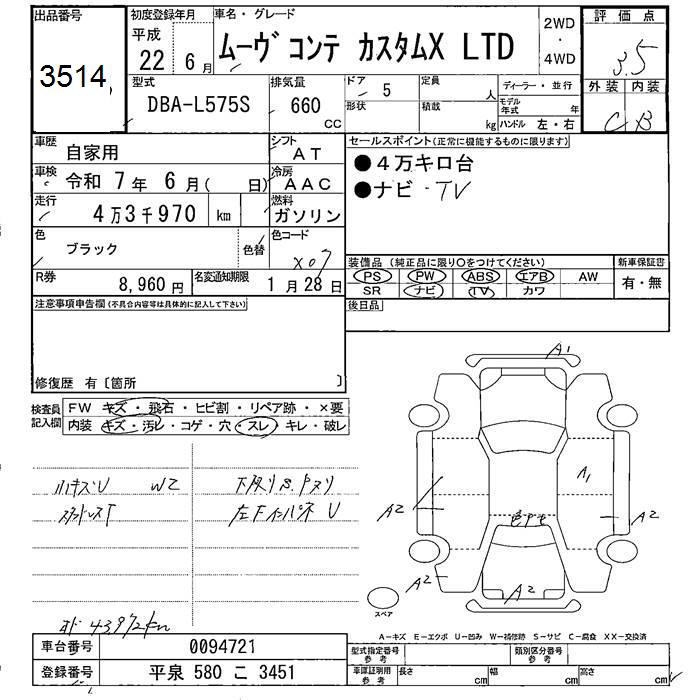 出品番号
3514
初度登録年月
平成
22年 6月
車名・グレード
ムーヴ コンテ カスタムX LTD
2WD
・
4WD
評価点
3.5
外装 内装
C B
型式
DBA-L575S
排気量
660
CC
ドア
5
形状
定員
人
積載
kg
ディーラー・並行
モデル年式 年
ハンドル 左・右
車歴
自家用
シフト
AT
車検
令和 7年 6月( 日)
冷房
AAC
走行
4万3千970 km
燃料
ガソリン
色
ブラック
色替
色コード
X07
R券
8,960円
名変通知期限
1月28日
セールスポイント(正常に機能するものに限ります)
●4万キロ台
●ナビ・TV
装備品(純正品に限り○をつけてください)
PS PW ABS エアB AW
SR ナビ TV カワ
新車保証書
有・無
後日品
注意事項申告欄(不具合内容等は具体的に記入して下さい)
修復歴 有〔箇所 〕
検査員記入欄
FW キズ・飛石・ヒビ割・リペア跡・×要
内装 キズ・汚レ・コゲ・穴・スレ・キレ・破レ
W2
左下インパネ U
43972km
A1
A1
A2
A2
A2
A2
スペア
A-キズ E-エクボ U-凹み W-補修跡 S-サビ C-腐食 XX-交換済
車台番号
0094721
登録番号
平泉 580 こ 3451
型式指定番号
参考
類別区分番号
参考
車庫証明用
参考
長さ cm
幅 cm
高さ cm